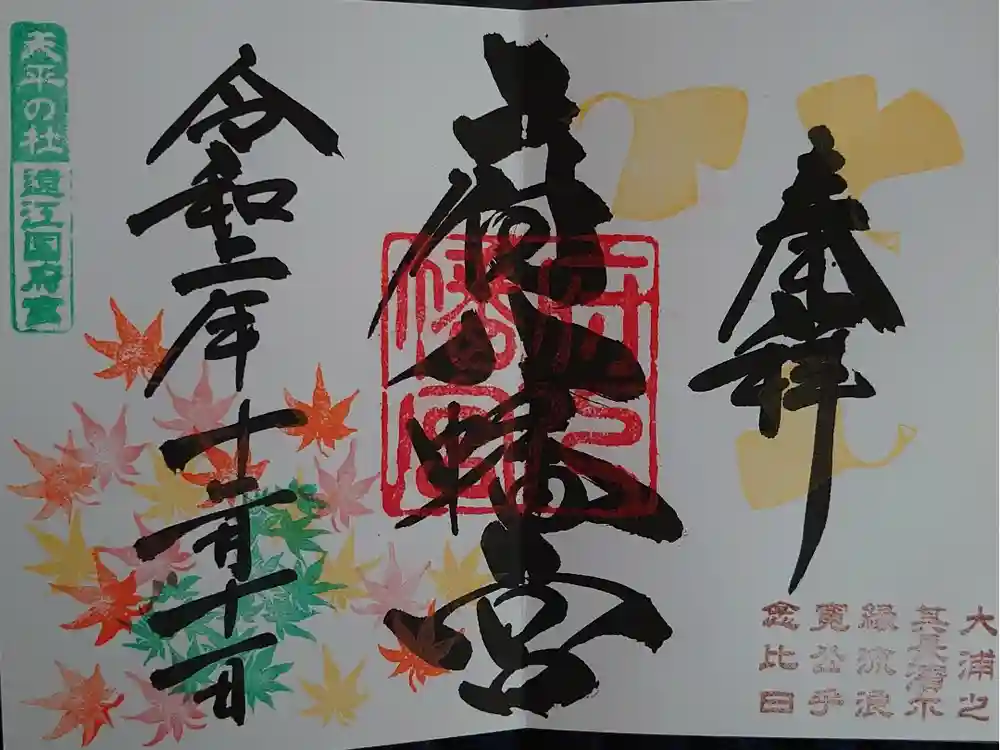 奉拝
大浦之
其長濱尓
縁流浪
寛公乎
念比日
府八幡宮
府八
幡宮
令和二年十二月十一日
天平の杜
遠江国府宮